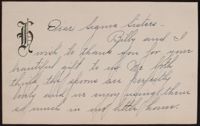 H
Dear Sigma Sisters -
Billy and I
wish to thank you for your
beautiful gift to us. We both
think the spoons are perfectly
lovely and we enjoy using them
so much in our little home.